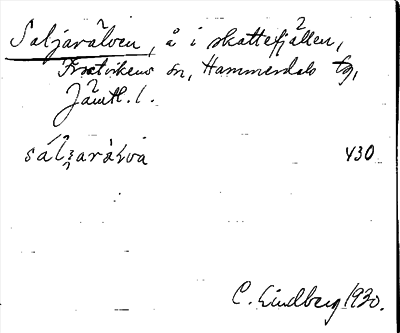 Saljarälven, å i skattefjällen,
Frostvikens sn, Hammerdals tg,
Jämtl. l.
430
C. Lindberg 1930.